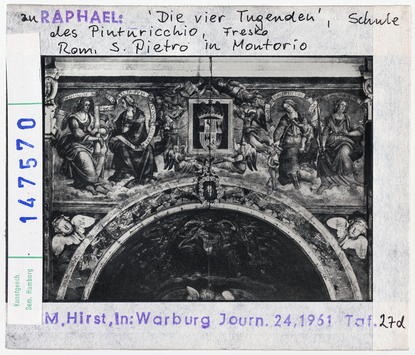 zu RAPHAEL: 'Die vier Tugenden', Schule
des Pinturicchio, Fresko
Rom, S. Pietro in Montorio
147570
Kunstgesch.
Sem. Hamburg
M. Hirst, In: Warburg Journ. 24, 1961 Taf. 27d